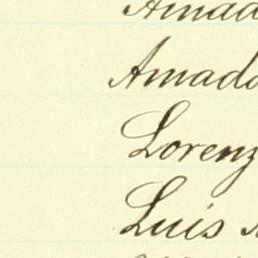 Amad
Amado
Lorenz
Luis